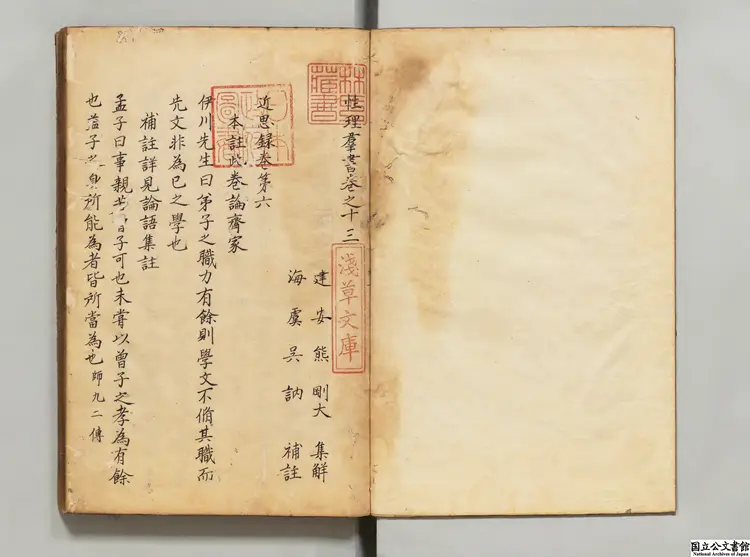 性理羣書卷之十三
建安熊剛大集解
海虞吳訥補註
近思録卷第六
本註此卷論齊家
伊川先生曰弟子之職力有餘則學文不脩其職而
先文非為已之學也
補註詳見論語集註
孟子曰事親若曾子可也未嘗以曾子之孝為有餘
也蓋子之身所能為者皆所當為也師九二傳
林氏藏書
日本政府圖書
淺草文庫
国立公文書館
National Archives of Japan